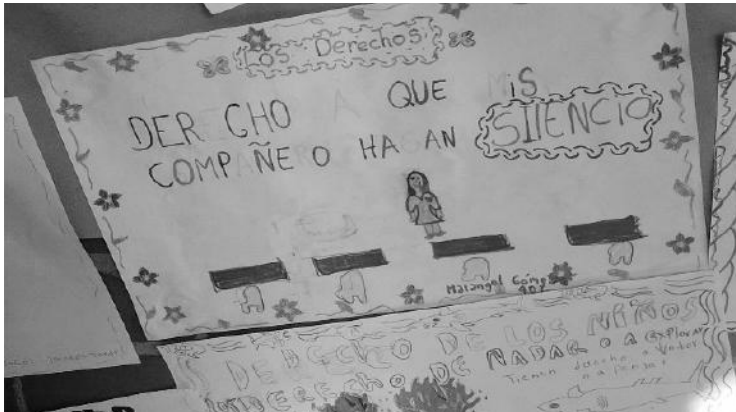 Los Derechos
DERECHO A QUE MiS
COMPAÑERO HAGAN SILENCIO
Maiangel Góme
401
DERECHO DE LOS NIÑOS
DERECHO DE NADAR O A EXPLORAR
Tienen derecho a
o a Pensar